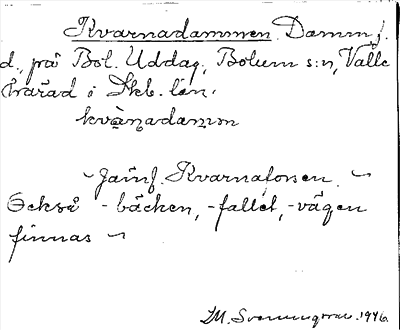 Kvarnadammen. Damm f.
d., på Bol. Uddag, Bolum s:n, Valle
härad i Skb. län.
kvànadamm
~ Jämf. Kvarnaforsen. ~
Också -bäcken, -fallet, -vägen
finnas ~
1946.